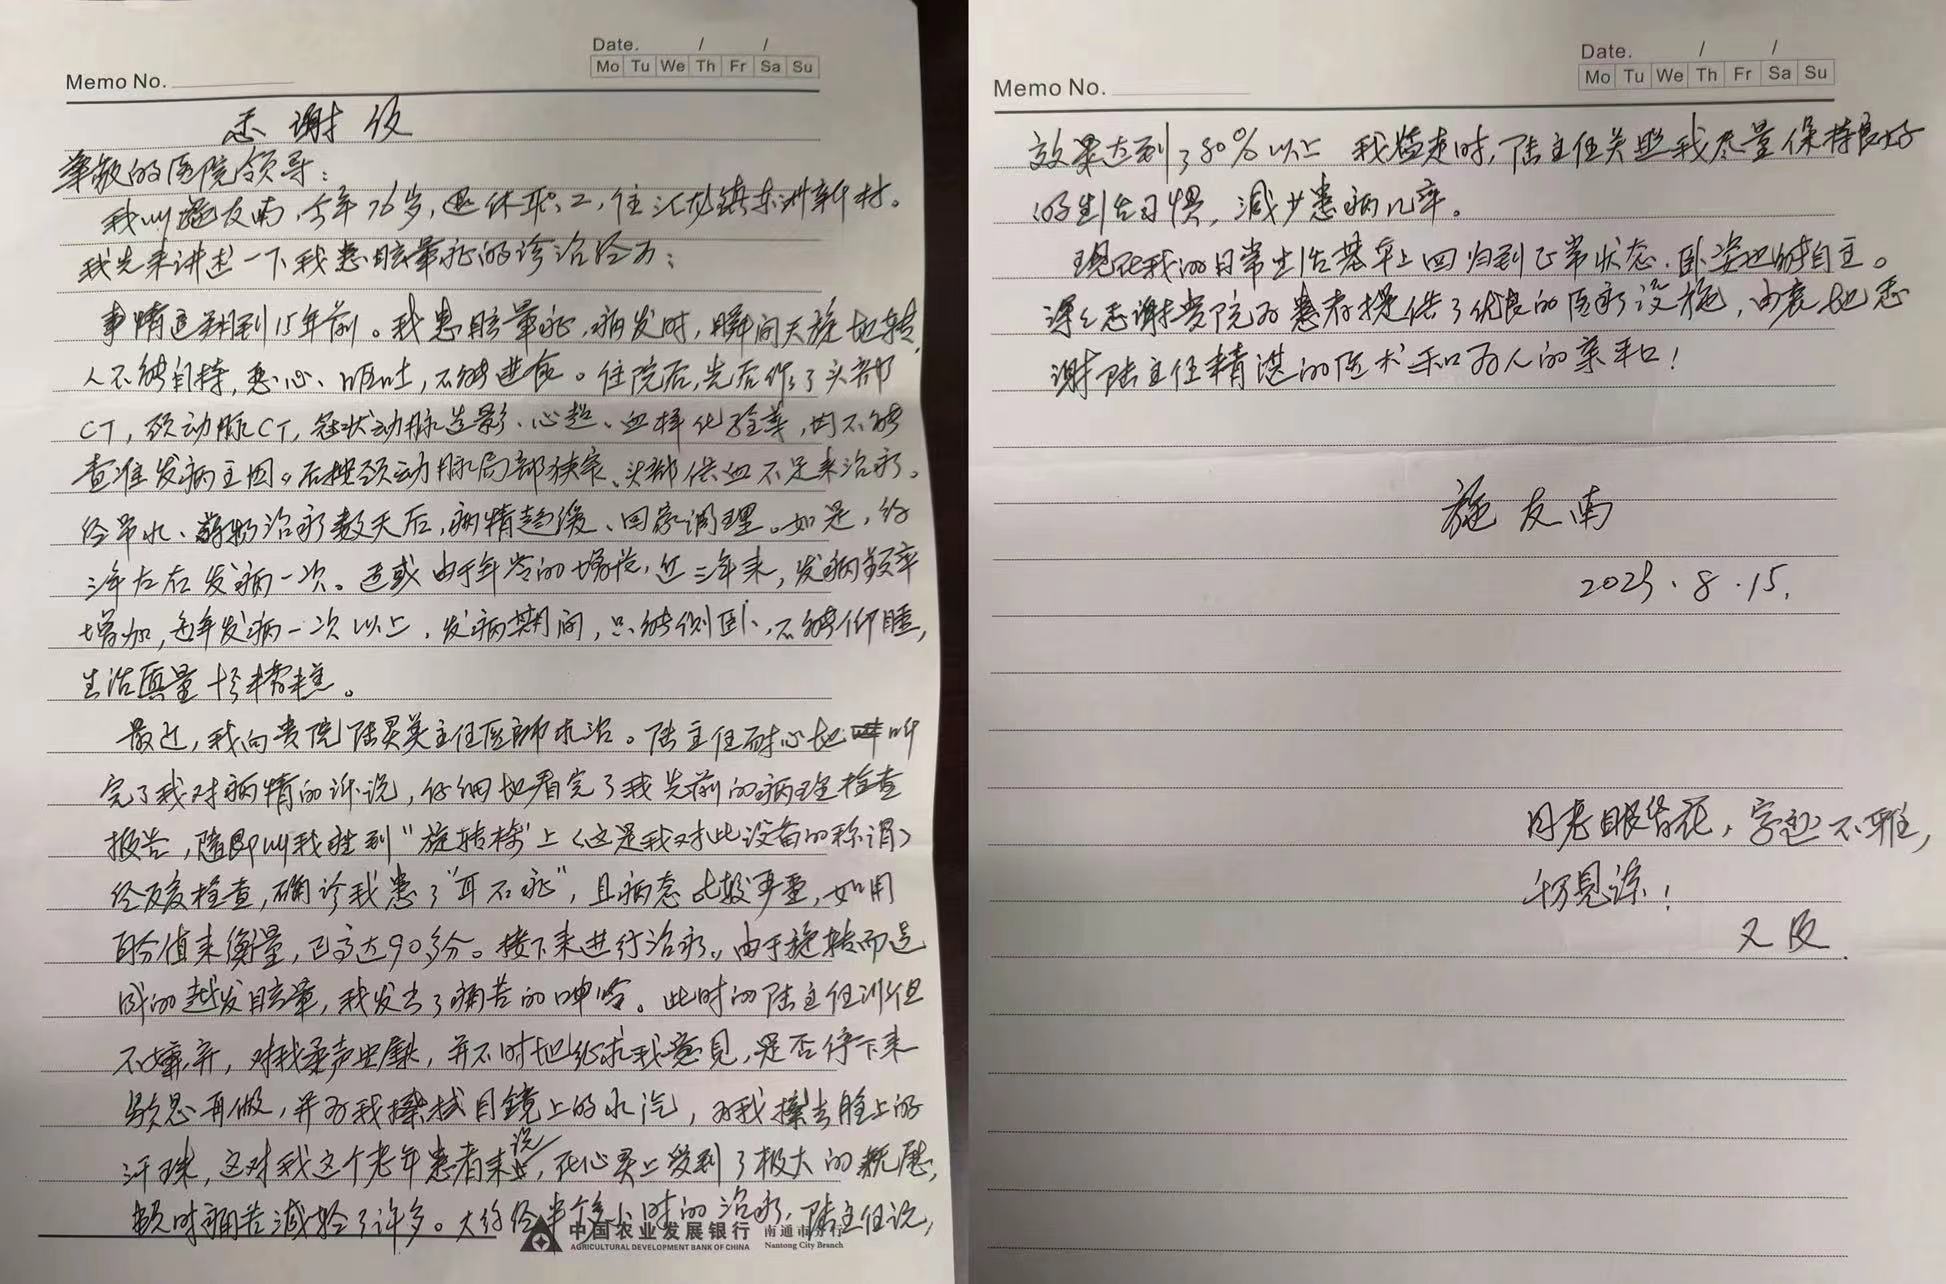 Memo No.
Date. / /
Mo Tu We Th Fr Sa Su
感谢信
尊敬的医院领导:
我叫施友南,今年76岁,退休职工,住汇龙镇东洲新村。
我先来讲述一下我患眩晕症的诊治经历:
事情追溯到15年前。我患眩晕症,病发时,瞬间天旋地转,
人不能自持,恶心、呕吐,不能进食。住院后,先后作了头部
CT,颈动脉CT,冠状动脉造影、心超、血样化验等,均不能
查准发病主因。后按颈动脉局部狭窄、头部供血不足来治疗。
经吊水、药物治疗数天后,病情趋缓、回家调理。如是,约
三年左右发病一次。适或由于年岁的增长,近三年来,发病频率
增加,每年发病一次以上,发病期间,只能侧卧,不能仰睡,
生活质量十分糟糕。
最近,我向贵院陆灵美主任医师求治。陆主任耐心地听
完了我对病情的诉说,仔细地看完了我先前的病理检查
报告,随即叫我躺到“旋转椅”上(这是我对此设备的称谓)
经反复检查,确诊我患了“耳石症”,且病态比较严重,如用
百分值来衡量,已高达90多分。接下来进行治疗。由于旋转而造
成的越发眩晕,我发出了痛苦的呻吟。此时的陆主任非但
不嫌弃,对我柔声安慰,并不时地征求我意见,是否停下来
歇息再做,并为我擦拭目镜上的水汽,为我擦去脸上的
汗珠,这对我这个老年患者来说,在心灵上受到了极大的抚慰,
顿时痛苦减轻了许多。大约经半个多小时的治疗,陆主任说,
中国农业发展银行 南通市分行
AGRICULTURAL DEVELOPMENT BANK OF CHINA Nantong City Branch
Memo No.
Date. / /
Mo Tu We Th Fr Sa Su
效果达到了80%以上 我临走时,陆主任关照我尽量保持良好
的生活习惯,减少患病几率。
现在我的日常生活基本上回归到正常状态,卧姿也能自主。
深深感谢贵院为患者提供了优良的医疗设施,由衷地感
谢陆主任精湛的医术和为人的亲和!
施友南
2025.8.15.
因老眼昏花,字迹不雅,
切见谅!
又及.